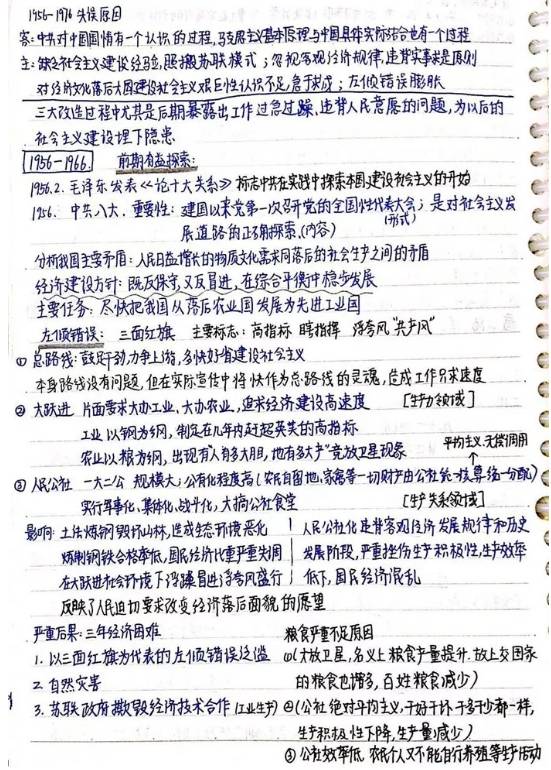 1956-1976 失误原因
答:中共对中国国情有一个认识的过程,马克思主义基本原理与中国具体实际结合也有一个过程
主:缺乏社会主义建设经验,照搬苏联模式;忽视客观经济规律,违背实事求是原则
对经济文化落后大国建设社会主义艰巨性认识不足,急于求成;左倾错误膨胀
三大改造过程中尤其是后期暴露出工作过急过躁,违背人民意愿的问题,为以后的
社会主义建设埋下隐患
1956-1966 前期有益探索:
1956.2.毛泽东发表《论十大关系》标志中共在实践中探索本国建设社会主义的开始
1956.中共八大.重要性:建国以来党第一次召开党的全国性代表大会;是对社会主义发
(形式)
展道路的正确探索.(内容)
分析我国主要矛盾:人民日益增长的物质文化需求同落后的社会生产之间的矛盾
经济建设方针:既反保守,又反冒进,在综合平衡中稳步发展
主要任务:尽快把我国从落后农业国发展为先进工业国
左倾错误:三面红旗 主要标志:高指标 瞎指挥 浮夸风 "共产风"
① 总路线:鼓足干劲,力争上游,多快好省建设社会主义
本身路线没有问题,但在实际宣传中将快作为总路线的灵魂,造成工作只求速度
② 大跃进 片面要求大办工业、大办农业,追求经济建设高速度 [生产力领域]
工业以钢为纲,制定在几年内赶超英美的高指标
农业以粮为纲,出现"人有多大胆,地有多大产"竞放卫星现象
平均主义、无偿调用
③ 人民公社 一大二公 规模大;公有化程度高(农民自留地,家禽等一切财产由公社统一核算,统一分配)
实行军事化、集体化、战斗化,大搞公社食堂 [生产关系领域]
影响:土法炼钢毁坏山林,造成生态环境恶化
炼制钢铁合格率低,国民经济比重严重失调
在大跃进社会环境下浮躁冒进浮夸风盛行
人民公社化违背客观经济发展规律和历史
发展阶段,严重挫伤生产积极性,生产效率
低下,国民经济混乱
反映了人民迫切要求改变经济落后面貌的愿望
严重后果:三年经济困难
1.以三面红旗为代表的左倾错误泛滥
2.自然灾害
3.苏联政府撕毁经济技术合作(工业生产)
粮食严重不足原因
①(大放卫星,名义上粮食产量提升.故上交国家
的粮食也增多,百姓粮食减少)
②(公社绝对平均主义,干好干坏干多干少都一样,
生产积极性下降,生产量减少)
③ 公社效率低 农民个人又不能自行养殖等生产活动